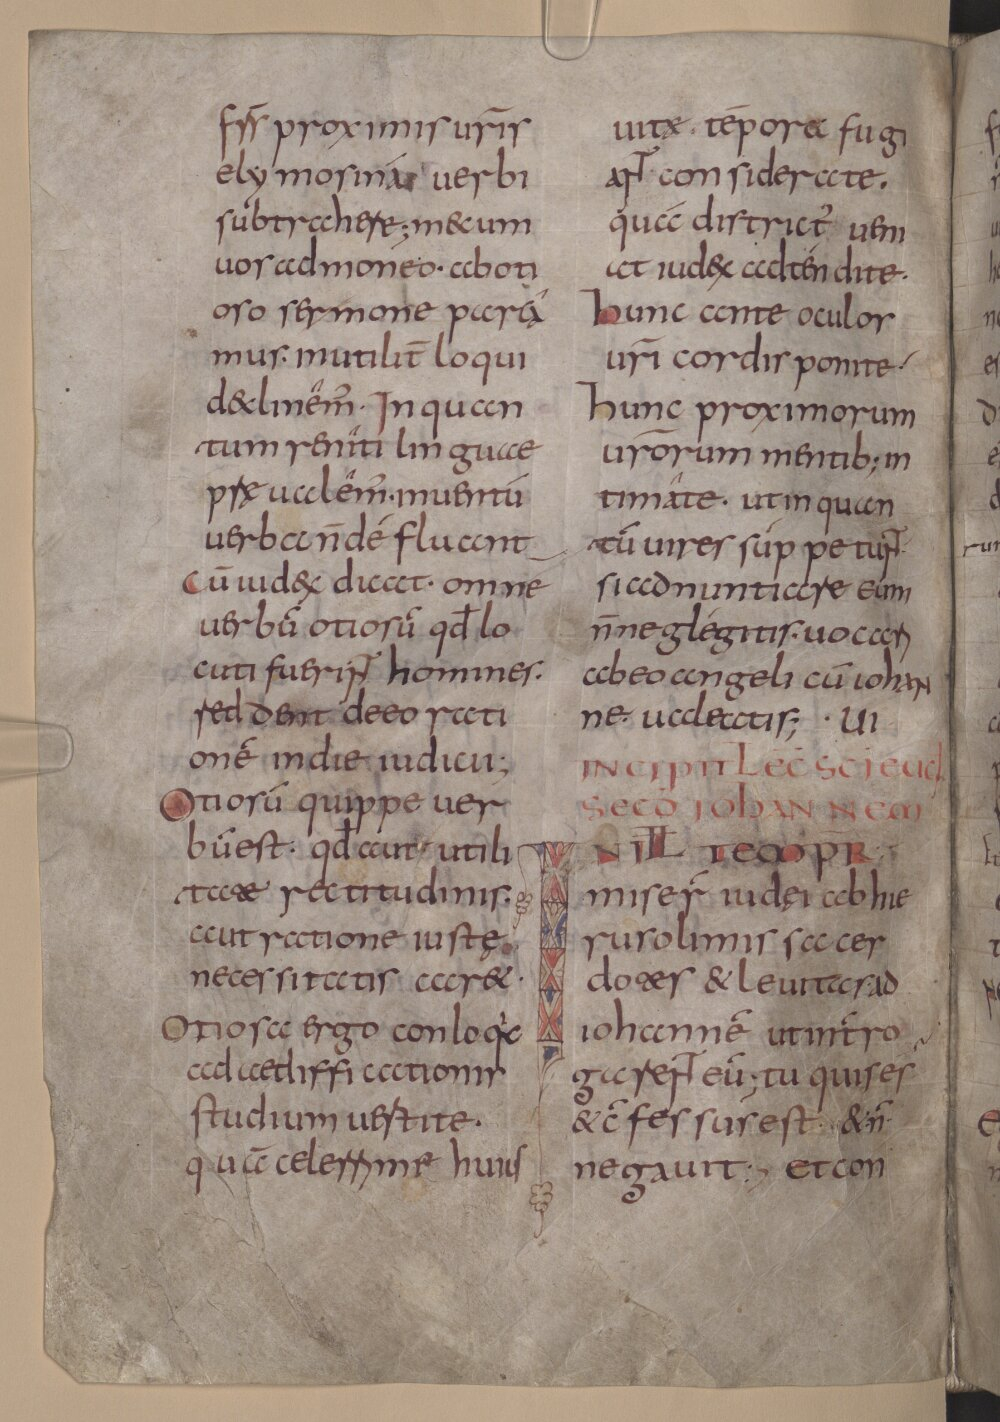 frs proximis uris
elymosinā uerbi
subtrahere; mecum
uos admoneo. ab oti
oso sermone parca
mus. inutilit loqui
declinem. In quan
tum reniti linguae
prę ualem. in uentū
uerba n̄ defluant
Cū iudex dicat. omne
uerbū otiosū qd lo
cuti fuerint homines.
red dent de eo rati
onē in die iudicii;
Otiosū quippe uer
bū est. qd aut utili
tate rectitudinis.
aut ratione iustę
necessitatis caret.
Otiosa ergo conloqa
ad aedifficationis
studium uertite.
quā celerrime huius
uitę tēpora fugi
ant considerate.
quā districtus ueni
at iudex adtendite.
hunc ante oculos
uri cordis ponite.
hunc proximorum
urorum mentib; in
timate. ut in quan
tū uires suppetunt
si adnuntiare eum
n̄ neglegitis. uocari
ab eo angeli cū iohan
ne ualeatis; · UI
INCIPIT LEC SCI EUG
SECD IOHANNEM
IN ILL TEMPR
miser iudęi ab hie
rusolimis sacer
dotes & leuitas ad
iohannē ut intro
garent eū; tu quis es
& c̄fessus est. & n̄
negauit; et con